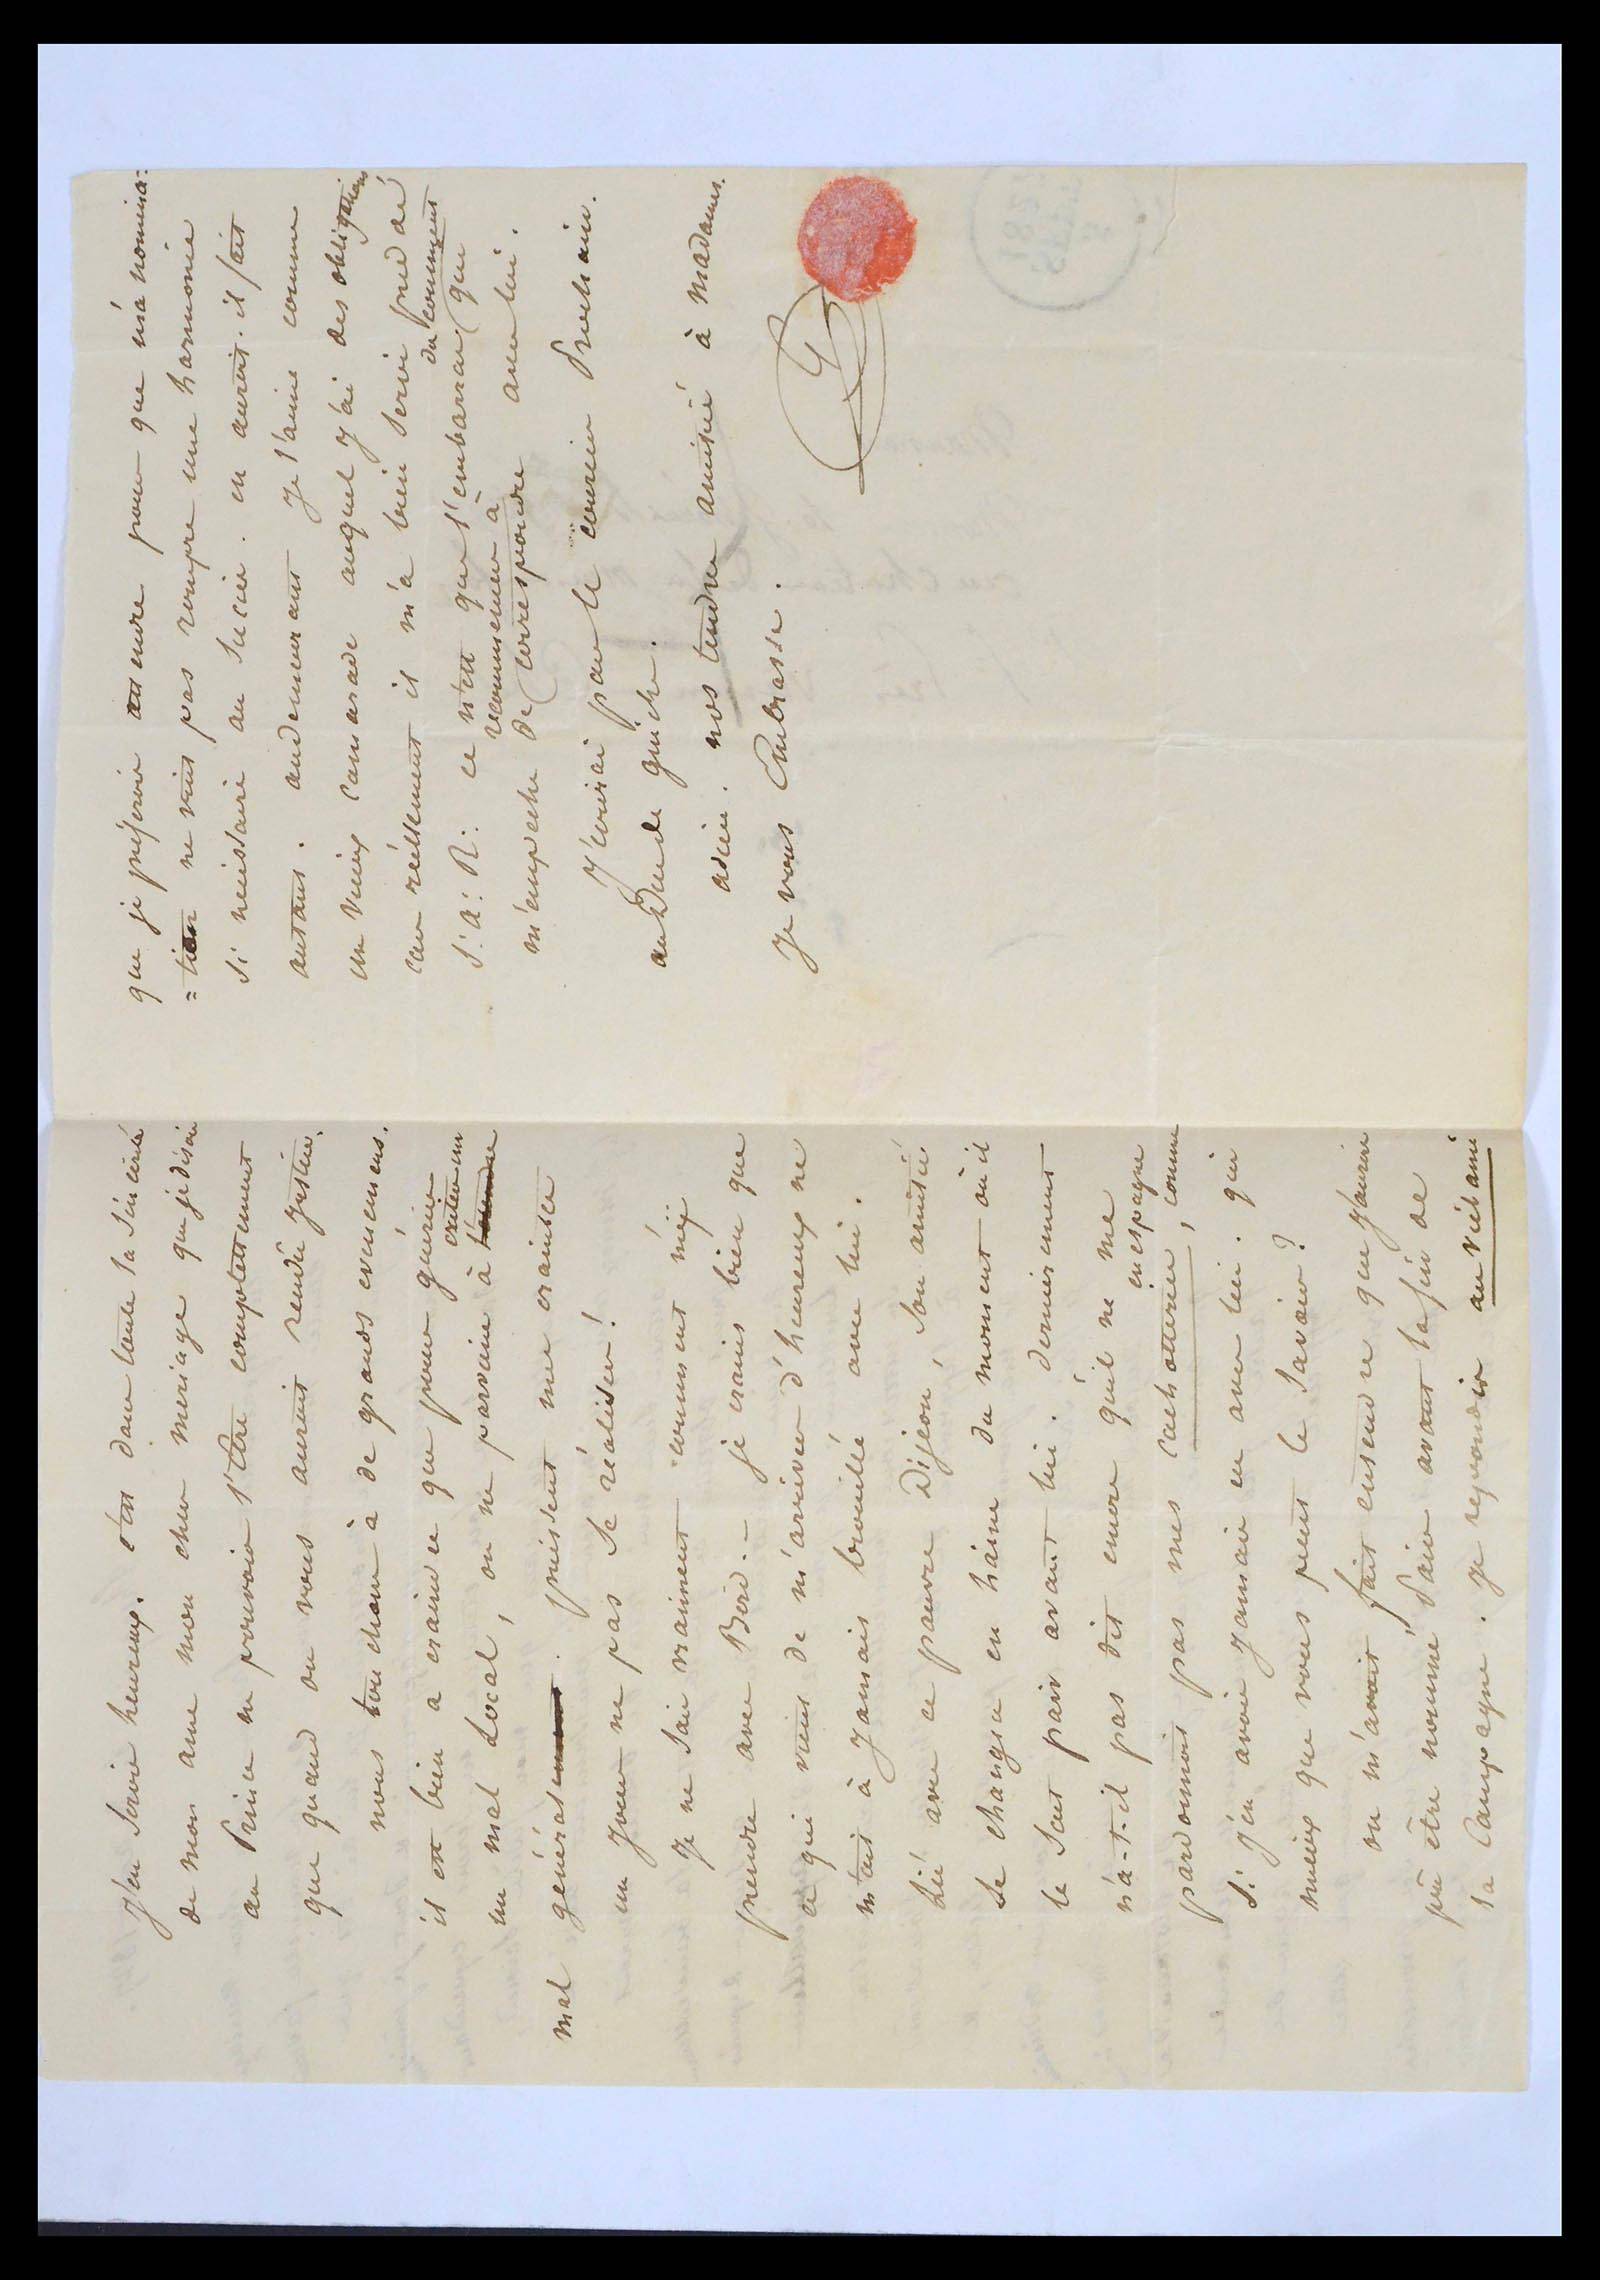 J'en serois heureux. c'est dans toute la sincérité
de mon ame mon cher meriage que je disois
au Prince ne pouvoir l'être complettement
que quand on vous auroit rendu justice.
nous touchons à de grands evenemens.
il est bien a craindre que pour guérir
un mal Local, on ne parvienne à exciter un
mal général. puissent mes craintes
un jour ne pas se réaliser!
Je ne sais vraiment comment m'y
prendre avec Bord. - je crains bien que
ce qui vient de m'arriver d'heureux ne
m'ait à jamais brouillé avec lui.
Lié avec ce pauvre Dijeon, son amitié
se changea en haine du moment où il
le fut pair avant lui. dernierement
n'a-t-il pas dit encore qu'il ne me
pardonnoit pas mes cachotteries en espagne, comme
si j'en avois jamais eu avec lui. qui
mieux que vous peut le savoir?
on m'avoit fait entendre que j'aurois
pu être nommé Pair avant la fin de
la Campagne. Je repondis au vieil ami
que je préférois attendre pour que ma nomina=
=tion ne vint pas rompre une harmonie
si necessaire au succès. en auroit-il fait
autant. au demeurant Je l'aime comme
un vieux camarade auquel j'ai des obligations
car réellement il m'a bien servi près de
S. A. R. ce n'est que l'embarras du comment qui
m'empeche de recommencer à correspondre avec lui.
J'écrirai par le courrier Prochain
au Duc de guiche.
adieu. nos tendres amitiés à Madame.
Je vous Embrasse.